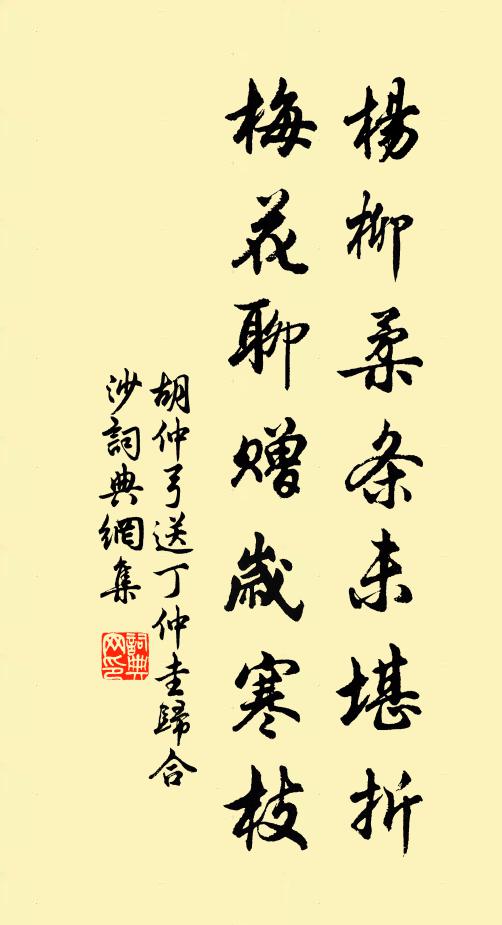 楊柳柔条未堪折
梅花聊贈歲寒枝
胡仲弓送丁仲圭歸合
沙詞典網集
詞典
网印